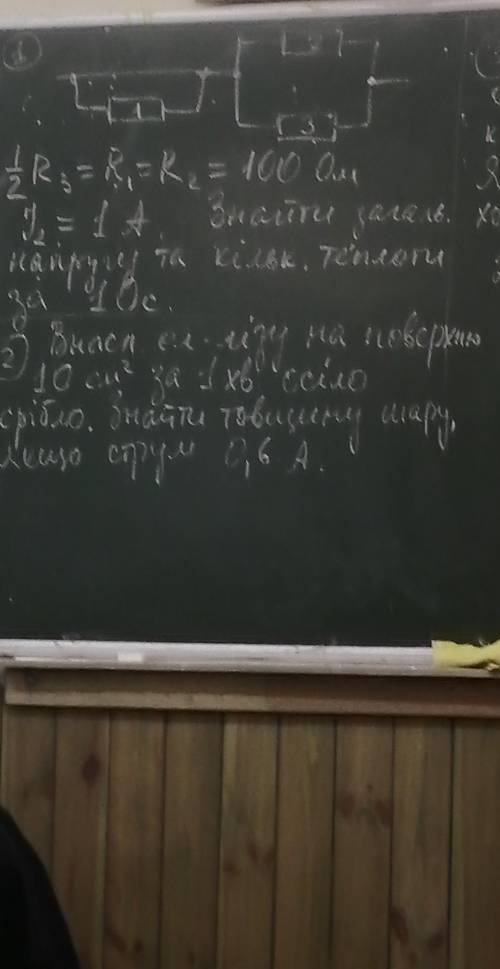 1
1
2
3
1/2 R₃ = R₁ = R₂ = 100 Ом
I₂ = 1 А. Знайти загальн.
напругу та кільк. теплоти
за 10с.
2) Внасл ел-лізу на поверхню
10 см² за 1 хв осіло
срібло. Знайти товщину шару,
якщо струм 0,6 А.